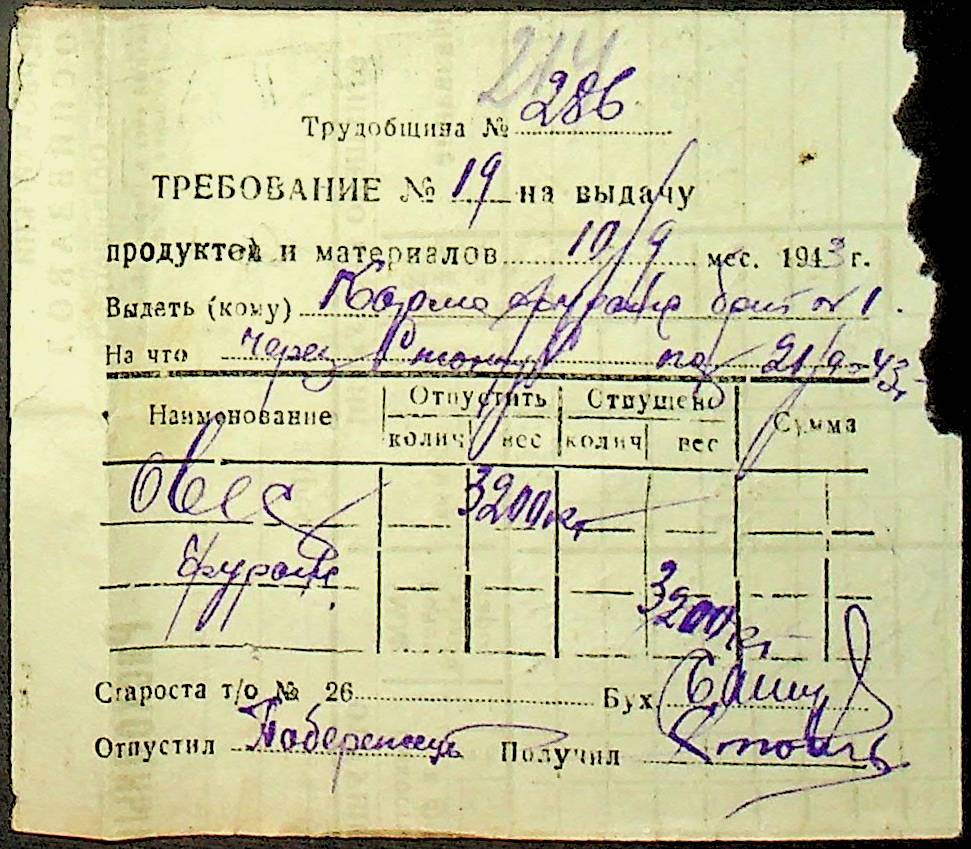 214
Трудобщина № 286
ТРЕБОВАНИЕ № 19 на выдачу
продуктов и материалов 10/9 мес. 1943 г.
Выдать (кому) фураж бриг № 1.
На что через по 21/9-43
Наименование Отпустить Отпущено Сумма
колич вес колич вес
Овес 3200 кг
фураж.
3200 кг
Староста т/о № 26 Бух.
Отпустил Побережець Получил